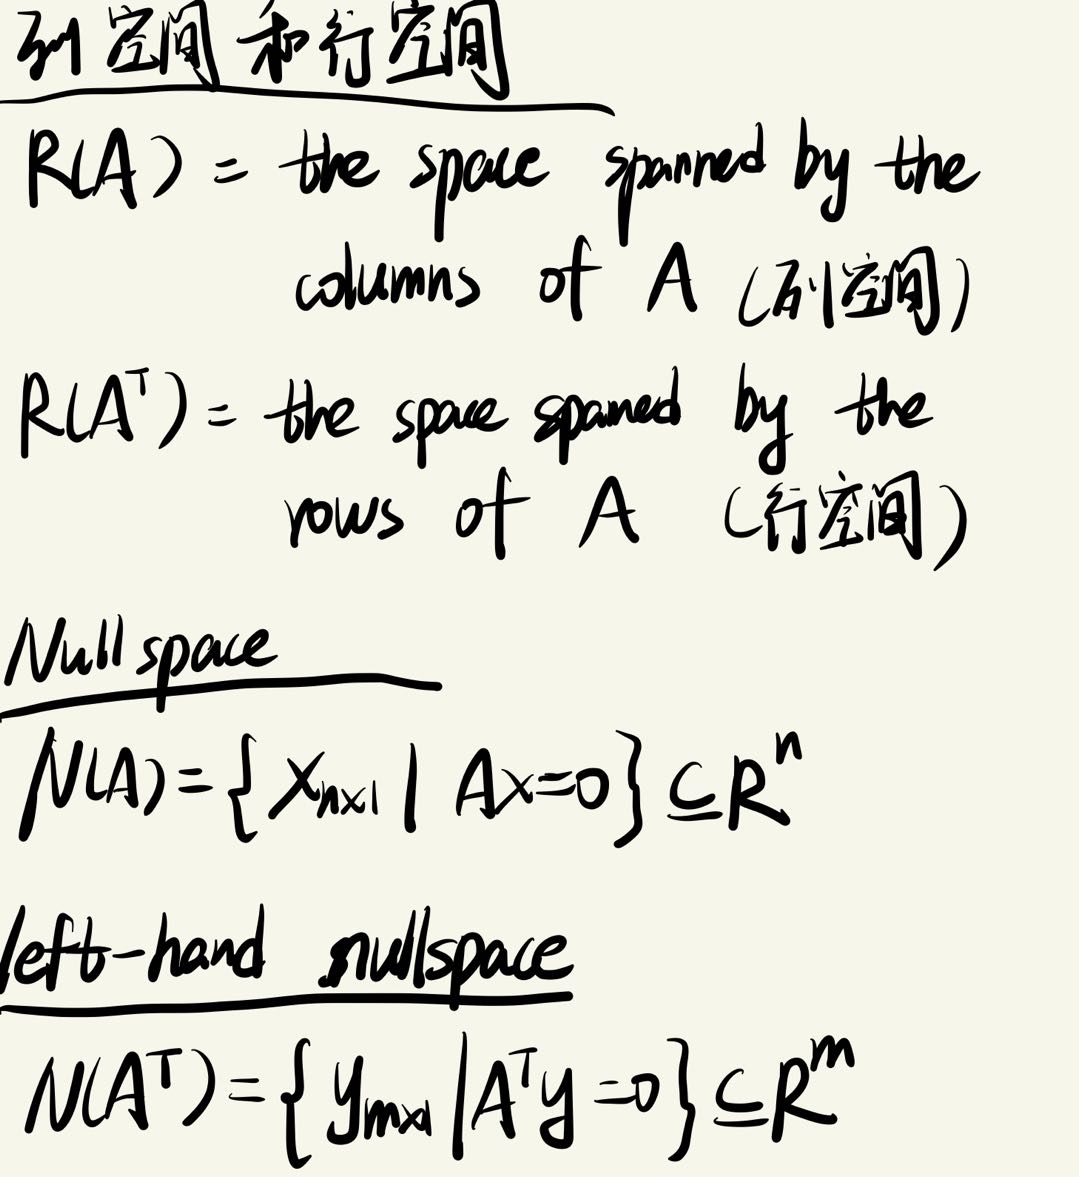 列空间和行空间
R(A) = the space spanned by the
columns of A (列空间)
R(Aᵀ) = the space spanned by the
rows of A (行空间)
Nullspace
N(A) = { xₙₓ₁ | Ax=0 } ⊆ Rⁿ
left-hand nullspace
N(Aᵀ) = { yₘₓ₁ | Aᵀy=0 } ⊆ Rᵐ